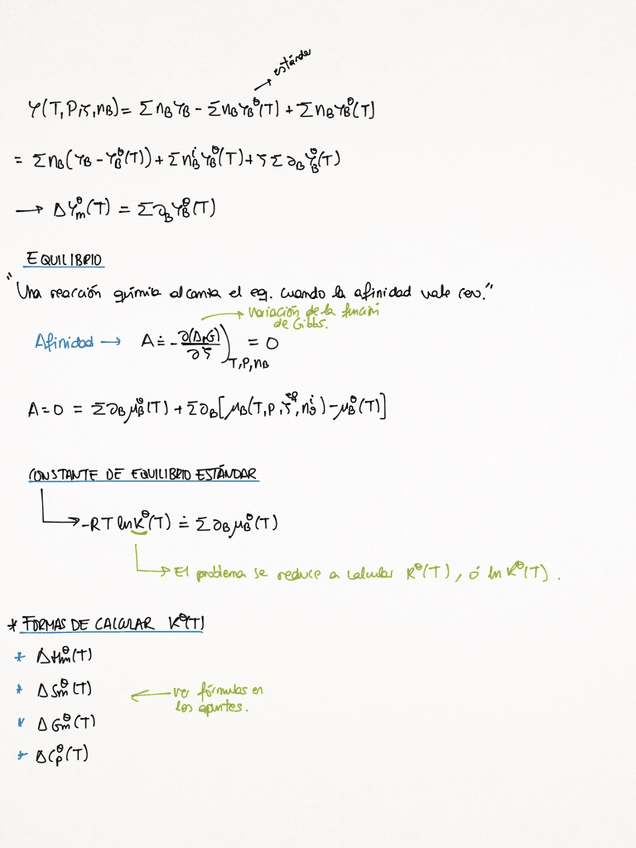 estándar
Y(T,P,ξ,nB) = Σ nB YB - Σ nB YB⁰(T) + Σ nB YB⁰(T)
= Σ nB (YB - YB⁰(T)) + Σ nBⁱ YB⁰(T) + ξ Σ ∂B YB⁰(T)
→ ΔYm⁰(T) = Σ ∂B YB⁰(T)
EQUILIBRIO
"Una reacción química alcanza el eq. cuando la afinidad vale cero."
variación de la función
de Gibbs.
Afinidad → A ≐ - ∂(ΔrG)/∂ξ )T,P,nB = 0
A = 0 = Σ ∂B μB⁰(T) + Σ ∂B [μB(T,P,ξ^eq,nBⁱ) - μB⁰(T)]
CONSTANTE DE EQUILIBRIO ESTÁNDAR
→ -RT ln K⁰(T) ≐ Σ ∂B μB⁰(T)
→ El problema se reduce a calcular K⁰(T), ó ln K⁰(T).
* FORMAS DE CALCULAR K⁰(T)
* ΔHm⁰(T)
* ΔSm⁰(T)
← ver fórmulas en
los apuntes.
* ΔGm⁰(T)
* ΔCp⁰(T)